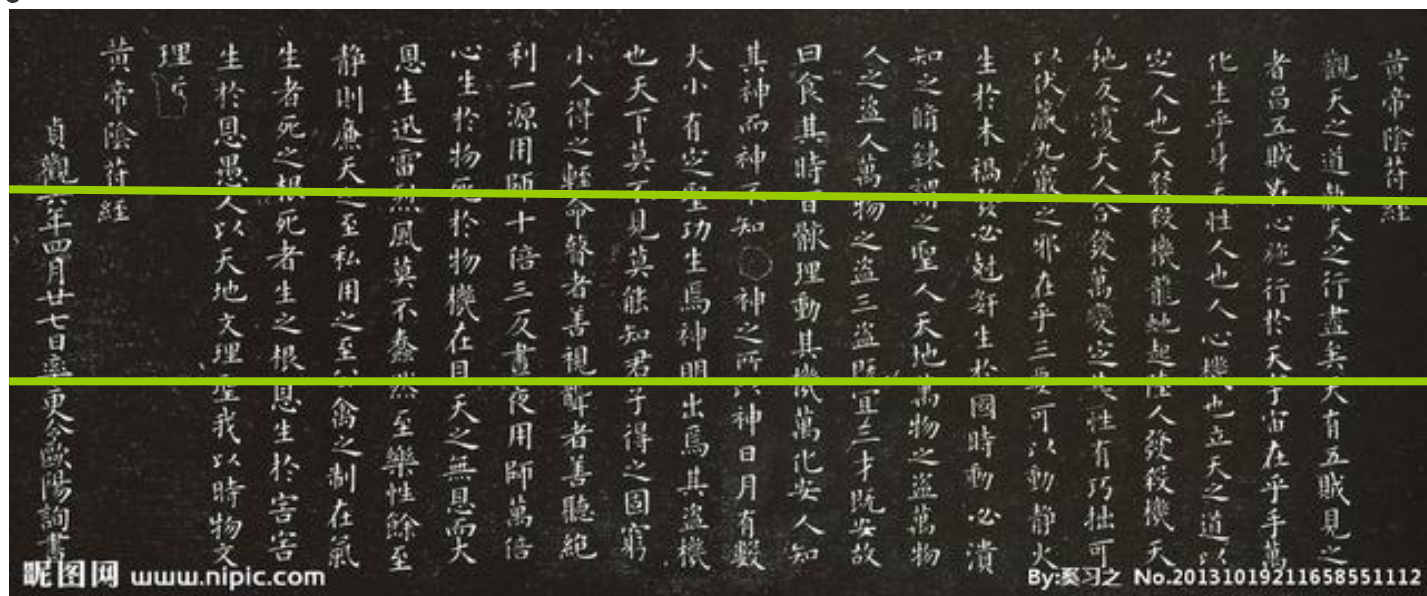 黃帝陰符經
觀天之道執天之行盡矣天有五賊見之
者昌五賊在心施行於天宇宙在乎手萬
化生乎身天性人也人心機也立天之道以
定人也天發殺機龍蛇起陸人發殺機天
地反覆天人合發萬變定基性有巧拙可
以伏藏九竅之邪在乎三要可以動靜火
生於木禍發必尅姧生於國時動必潰
知之脩鍊謂之聖人天地萬物之盜萬物
人之盜人萬物之盜三盜既宜三才既安故
曰食其時百骸理動其機萬化安人知
其神而神不知神之所以神日月有數
大小有定聖功生焉神明出焉其盜機
也天下莫不見莫能知君子得之固窮
小人得之輕命瞽者善視聾者善聽絕
利一源用師十倍三反晝夜用師萬倍
心生於物死於物機在目天之無恩而大
恩生迅雷烈風莫不蠢然至樂性餘至
靜則廉天之至私用之至公禽之制在氣
生者死之根死者生之根恩生於害害
生於恩愚人以天地文理聖我以時物文
理
黃帝陰符經
貞觀六年四月廿七日率更令歐陽詢書
昵图网 www.nipic.com
By:奚习之 No.20131019211658551112